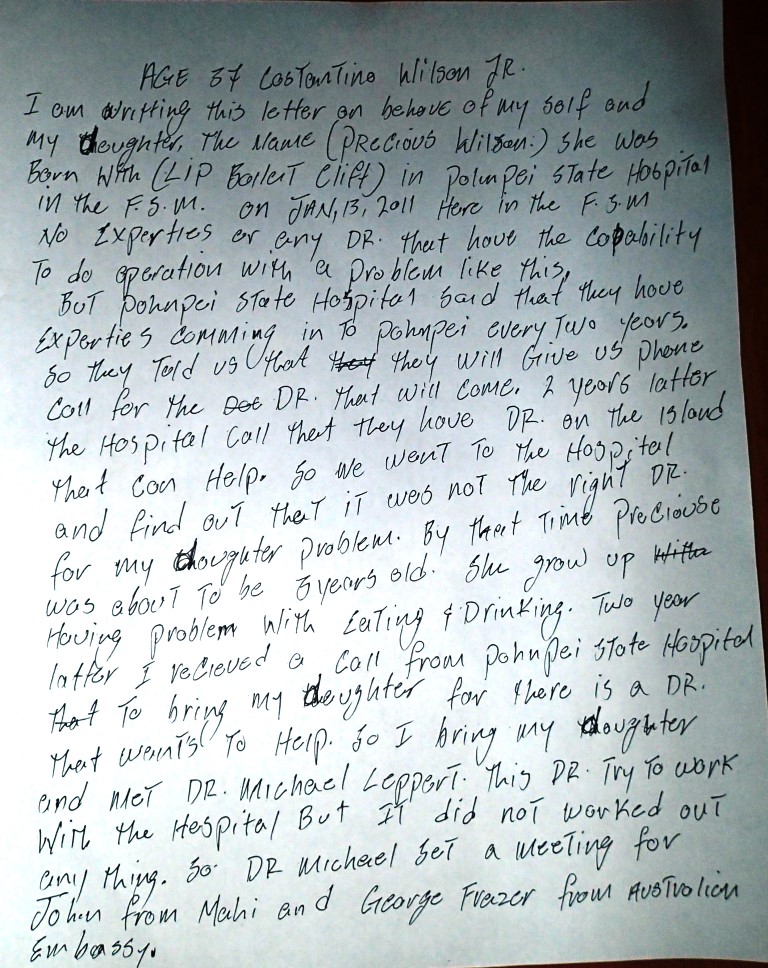 AGE 37 Costantino Wilson JR.
I am writting this letter on behave of my self and
my daughter, The Name (PRECIOUS Wilson:) She was
Born With (LIP Bailert Clift) in Pohnpei STATE Hospital
in the F.S.M. on JAN, 13, 2011 Here in the F.S.M
No Experties or any DR. that have the Capability
To do operation with a Problem like this,
BUT Pohnpei STATE Hospital Said that they have
Experties comming in To Pohnpei every Two years.
So they Told us that they they will Give us phone
Call for the Doc DR. that will come. 2 years latter
the Hospital Call that they have DR. on the Island
that Can Help. So we went To the Hospital
and find out that it was not the right DR.
for my daughter Problem. By that Time Preciouse
was about To be 3 years old. She grow up With
Having problem With Eating & Drinking. Two year
latter I recieved a Call from Pohnpei State Hospital
that To bring my daughter for there is a DR.
that wants To Help. So I bring my daughter
and MET DR. Michael Leppert. This DR. Try To work
With the Hospital But IT did not worked out
any thing. So DR Michael Set a meeting for
John from Mahi and George Frazer from AUSTralian
Embassy.